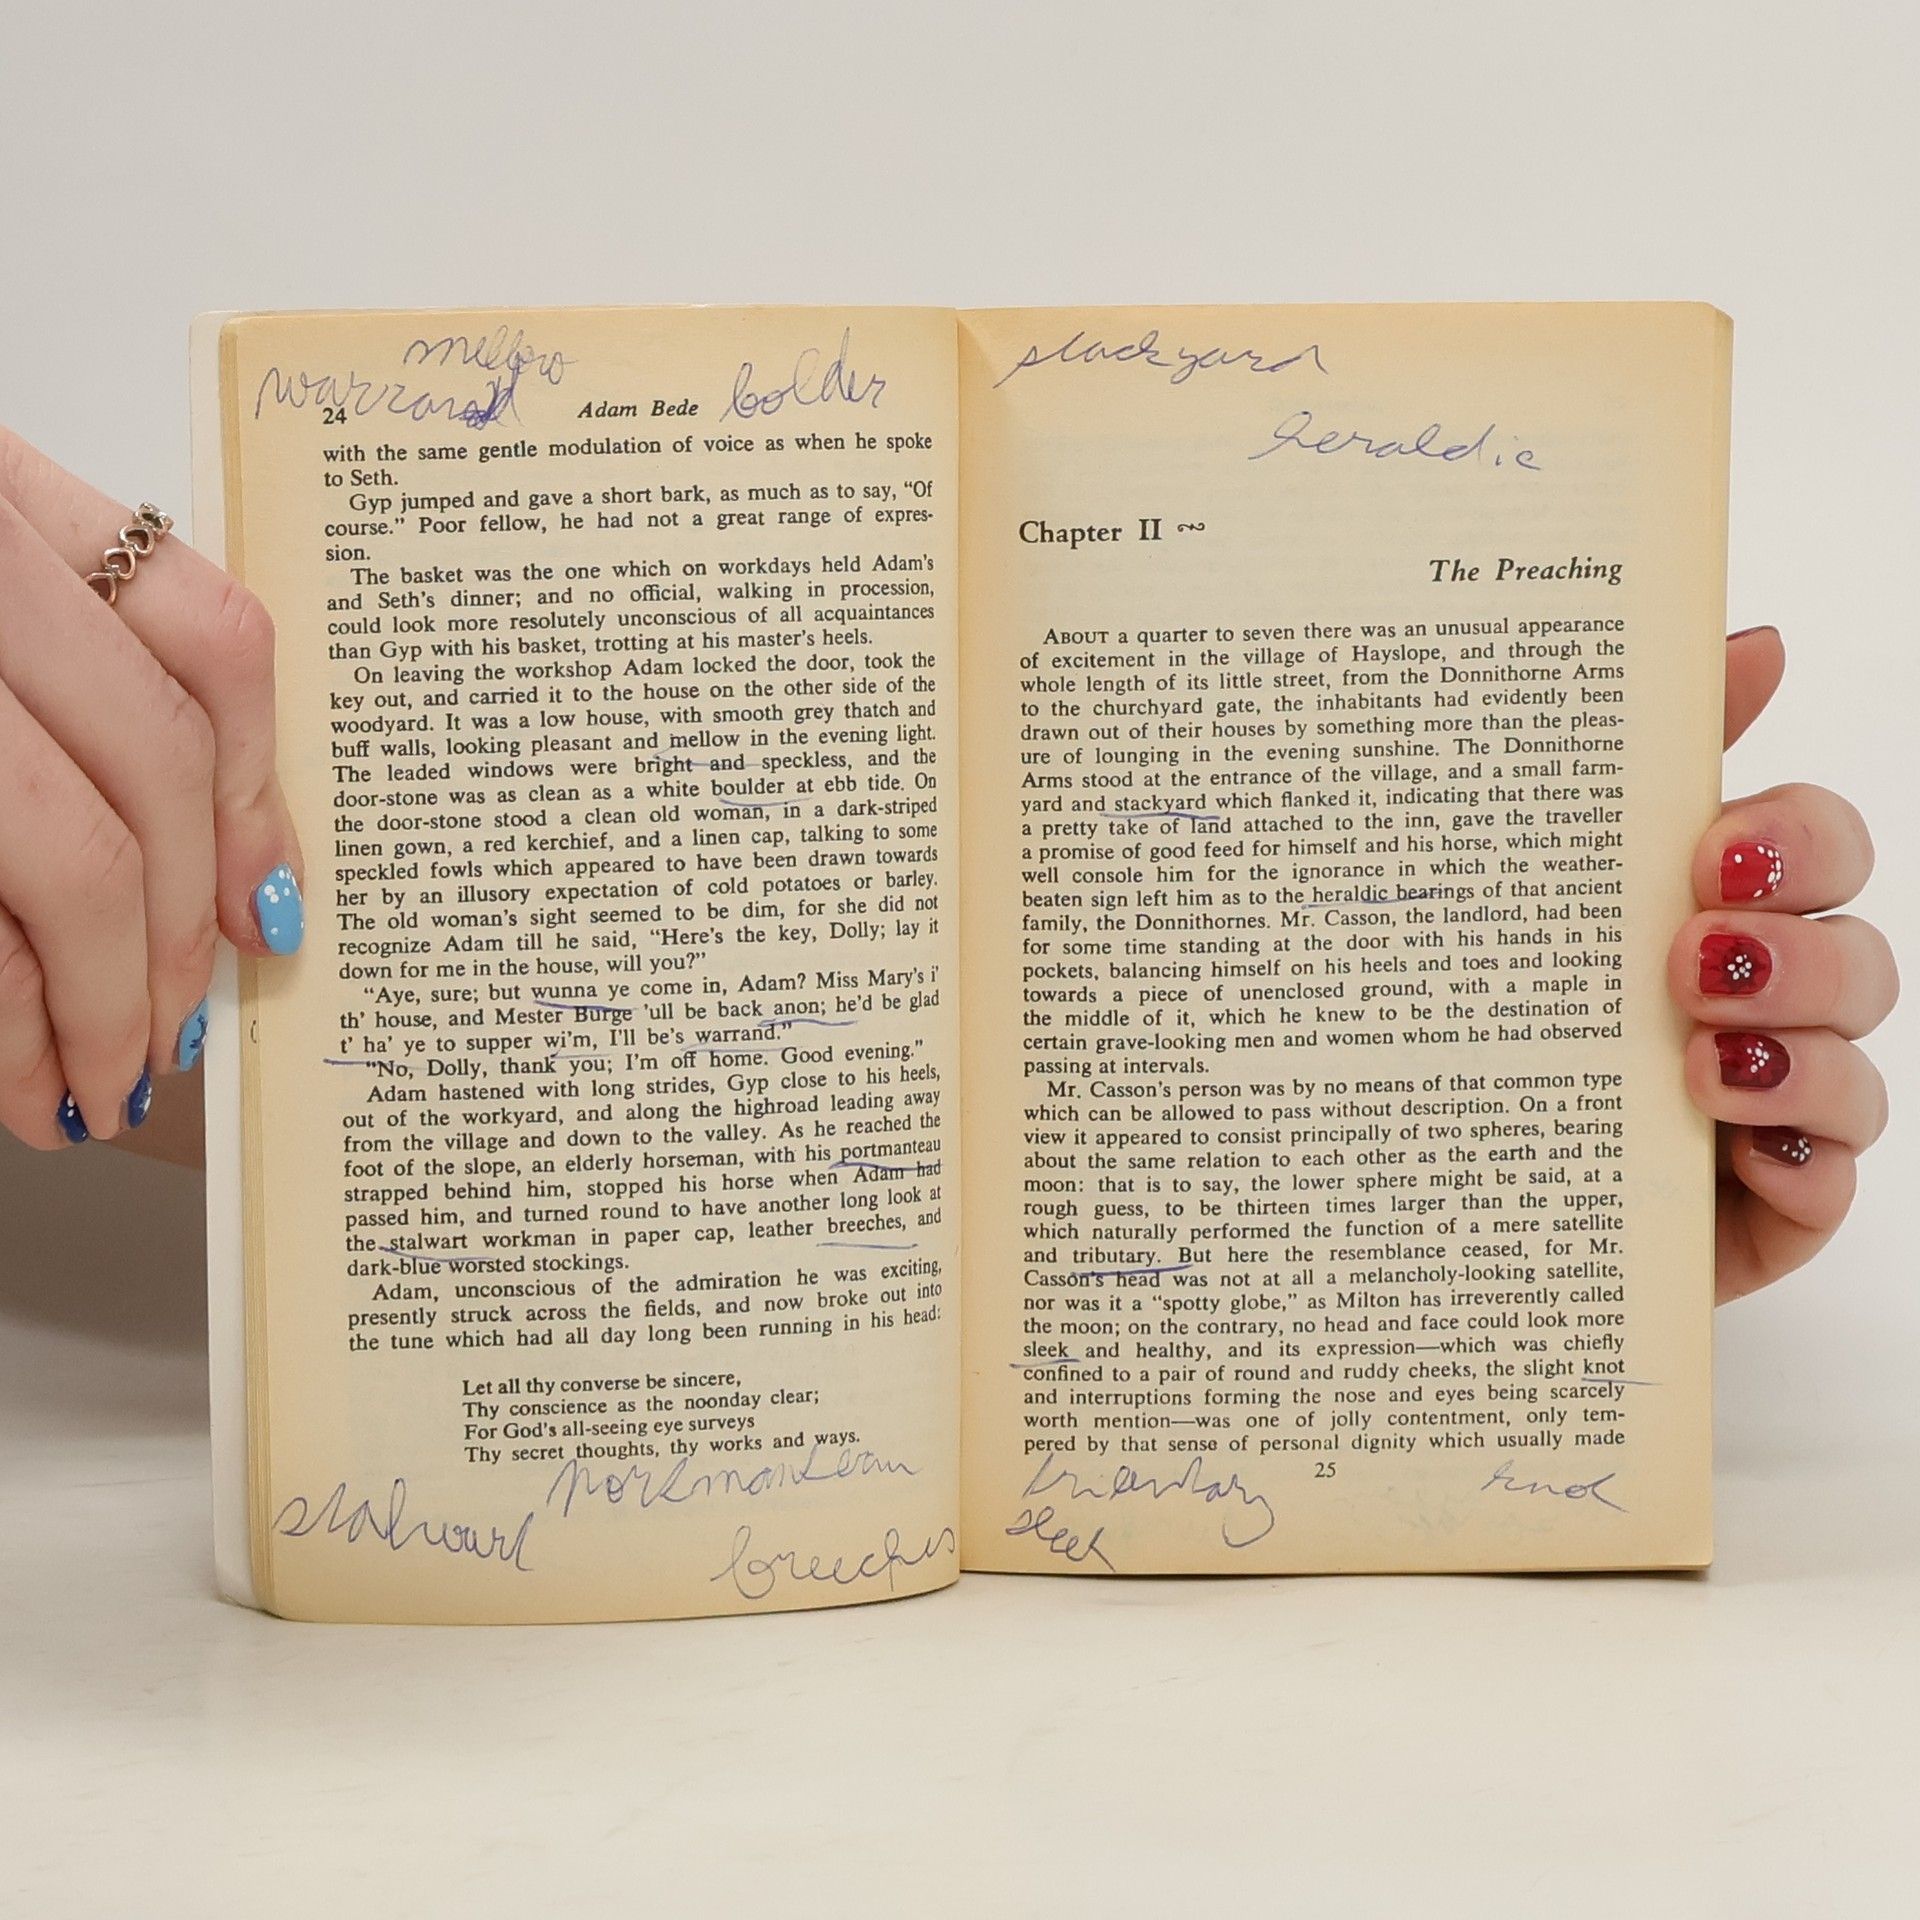 mellow
warrand
bolder
24
Adam Bede
with the same gentle modulation of voice as when he spoke
to Seth.
Gyp jumped and gave a short bark, as much as to say, “Of
course.” Poor fellow, he had not a great range of expres-
sion.
The basket was the one which on workdays held Adam's
and Seth's dinner; and no official, walking in procession,
could look more resolutely unconscious of all acquaintances
than Gyp with his basket, trotting at his master's heels.
On leaving the workshop Adam locked the door, took the
key out, and carried it to the house on the other side of the
woodyard. It was a low house, with smooth grey thatch and
buff walls, looking pleasant and mellow in the evening light.
The leaded windows were bright and speckless, and the
door-stone was as clean as a white boulder at ebb tide. On
the door-stone stood a clean old woman, in a dark-striped
linen gown, a red kerchief, and a linen cap, talking to some
speckled fowls which appeared to have been drawn towards
her by an illusory expectation of cold potatoes or barley.
The old woman's sight seemed to be dim, for she did not
recognize Adam till he said, “Here's the key, Dolly; lay it
down for me in the house, will you?”
“Aye, sure; but wunna ye come in, Adam? Miss Mary's i'
th' house, and Mester Burge 'ull be back anon; he'd be glad
t' ha' ye to supper wi'm, I'll be's warrand.”
“No, Dolly, thank you; I'm off home. Good evening.”
Adam hastened with long strides, Gyp close to his heels,
out of the workyard, and along the highroad leading away
from the village and down to the valley. As he reached the
foot of the slope, an elderly horseman, with his portmanteau
strapped behind him, stopped his horse when Adam had
passed him, and turned round to have another long look at
the stalwart workman in paper cap, leather breeches, and
dark-blue worsted stockings.
Adam, unconscious of the admiration he was exciting,
presently struck across the fields, and now broke out into
the tune which had all day long been running in his head:
Let all thy converse be sincere,
Thy conscience as the noonday clear;
For God's all-seeing eye surveys
Thy secret thoughts, thy works and ways.
portmanteau
stalwart
breeches
stackyard
heraldic
Chapter II
The Preaching
ABOUT a quarter to seven there was an unusual appearance
of excitement in the village of Hayslope, and through the
whole length of its little street, from the Donnithorne Arms
to the churchyard gate, the inhabitants had evidently been
drawn out of their houses by something more than the pleas-
ure of lounging in the evening sunshine. The Donnithorne
Arms stood at the entrance of the village, and a small farm-
yard and stackyard which flanked it, indicating that there was
a pretty take of land attached to the inn, gave the traveller
a promise of good feed for himself and his horse, which might
well console him for the ignorance in which the weather-
beaten sign left him as to the heraldic bearings of that ancient
family, the Donnithornes. Mr. Casson, the landlord, had been
for some time standing at the door with his hands in his
pockets, balancing himself on his heels and toes and looking
towards a piece of unenclosed ground, with a maple in
the middle of it, which he knew to be the destination of
certain grave-looking men and women whom he had observed
passing at intervals.
Mr. Casson's person was by no means of that common type
which can be allowed to pass without description. On a front
view it appeared to consist principally of two spheres, bearing
about the same relation to each other as the earth and the
moon: that is to say, the lower sphere might be said, at a
rough guess, to be thirteen times larger than the upper,
which naturally performed the function of a mere satellite
and tributary. But here the resemblance ceased, for Mr.
Casson's head was not at all a melancholy-looking satellite,
nor was it a “spotty globe,” as Milton has irreverently called
the moon; on the contrary, no head and face could look more
sleek and healthy, and its expression—which was chiefly
confined to a pair of round and ruddy cheeks, the slight knot
and interruptions forming the nose and eyes being scarcely
worth mention—was one of jolly contentment, only tem-
pered by that sense of personal dignity which usually made
25
tributary
sleek